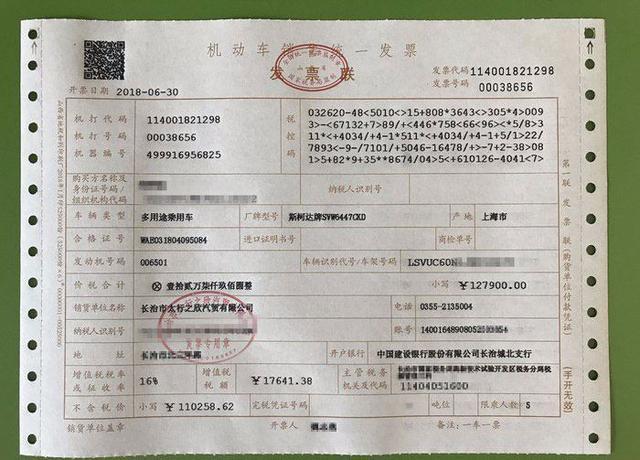 机动车销售统一发票
发票联
发票代码 114001821298
发票号码 00038656
开票日期 2018-06-30
机打代码 114001821298
机打号码 00038656
机器编号 499916956825
税控码
032620-48<5010<>15+808*3643<>305*4>009
3>-<67132+7>89/+<446*758<66<96><*5/8>3
11*<+4034/+4-1*511*<+4034/+4-1+5/1>22/
7893<-9-/7101/+5046-16478/+>-7+2-38>08
1>5+82*9+35**8674/04>5<+610126-4041<7>
购买方名称及身份证号码/组织机构代码
纳税人识别号
车辆类型 多用途乘用车 厂牌型号 斯柯达牌SVW6447CKD 产地 上海市
合格证号 WAB031804095084 进口证明书号 商检单号
发动机号码 006501 车辆识别代号/车架号码 LSVUC60N
价税合计 ⊗壹拾贰万柒仟玖佰圆整 小写 ￥127900.00
销货单位名称 长治市太行之欣汽贸有限公司 电话 0355-2135004
纳税人识别号 账号
地址 开户银行 中国建设银行股份有限公司长治城北支行
增值税税率或征收率 16% 增值税税额 ￥17641.38 主管税务机关及代码
不含税价 小写 ￥110258.62 完税凭证号码 吨位 限乘人数 5
销货单位盖章 开票人 备注：一车一票
第一联 发票联（购货单位付款凭证）
（手开无效）
发票专用章